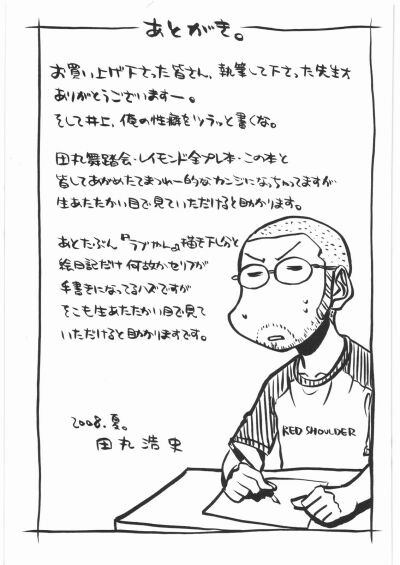 あとがき。
お買い上げ下さった皆さん、執筆して下さった先生方
ありがとうございますー。
そして井上、俺の性癖をツラッと書くな。
田丸舞踏会・レイモンド全プレ本・この本と
皆してあがめたてまつれー的なカンジになっちゃってますが
生あたたかい目で見ていただけると助かります。
あとたぶん『ラブやん』描き下し分と
絵日記だけ何故かセリフが
手書きになってるハズですが
そこも生あたたかい目で見て
いただけると助かりますです。
2008.夏。
田丸浩史
RED SHOULDER